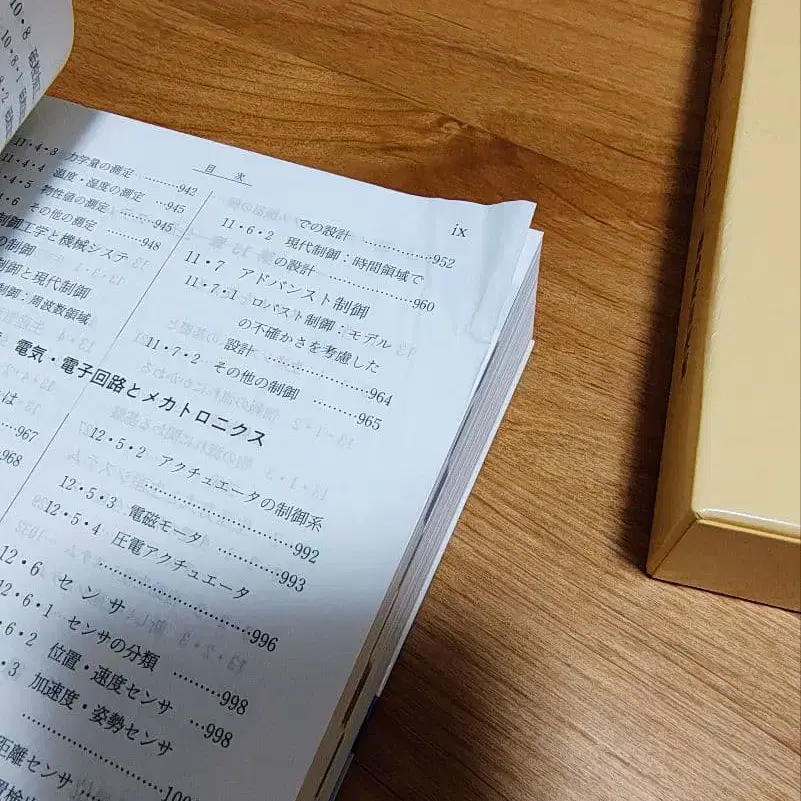 10・8
10・8・1
8・2
目 次
ix
11・4・3 力学量の測定 ………942
11・4・4 温度・湿度の測定 …945
4・5 物性値の測定………945
4・6 その他の測定 ……948
制御工学と機械システ
の制御
制御と現代制御
制御：周波数領域
での設計 ………………952
11・6・2 現代制御：時間領域で
の設計 ………………960
11・7 アドバンスト制御
11・7・1 ロバスト制御：モデル
の不確かさを考慮した
設計 ………………964
11・7・2 その他の制御 ………965
電気・電子回路とメカトロニクス
は
…967
968
12・5・2 アクチュエータの制御系
………………………992
12・5・3 電磁モータ …………993
12・5・4 圧電アクチュエータ
………………………996
12・6 センサ
12・6・1 センサの分類 ………998
6・2 位置・速度センサ …998
・3 加速度・姿勢センサ
距離センサ